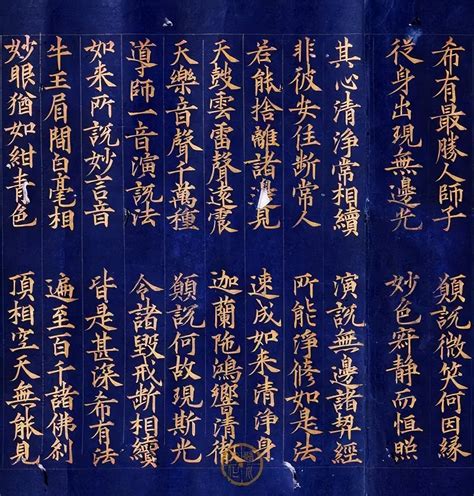 希有最勝人師子 願說微笑何因縁
従身出現無邊光 妙色寂静而恒照
其心清淨常相續 演說無邊諸契經
非彼安住断常人 所能淨修如是法
若能捨離諸見 速成如来清淨身
天鼓雲雷聲遠震 迦蘭陁鴻響清徹
天樂音聲千萬種 願說何故現斯光
導師一音演說法 令諸毀戒断相續
如来所說妙言音 皆是甚深希有法
牛王眉間白毫相 遍至百千諸佛刹
妙眼猶如紺青色 頂相空天無能見